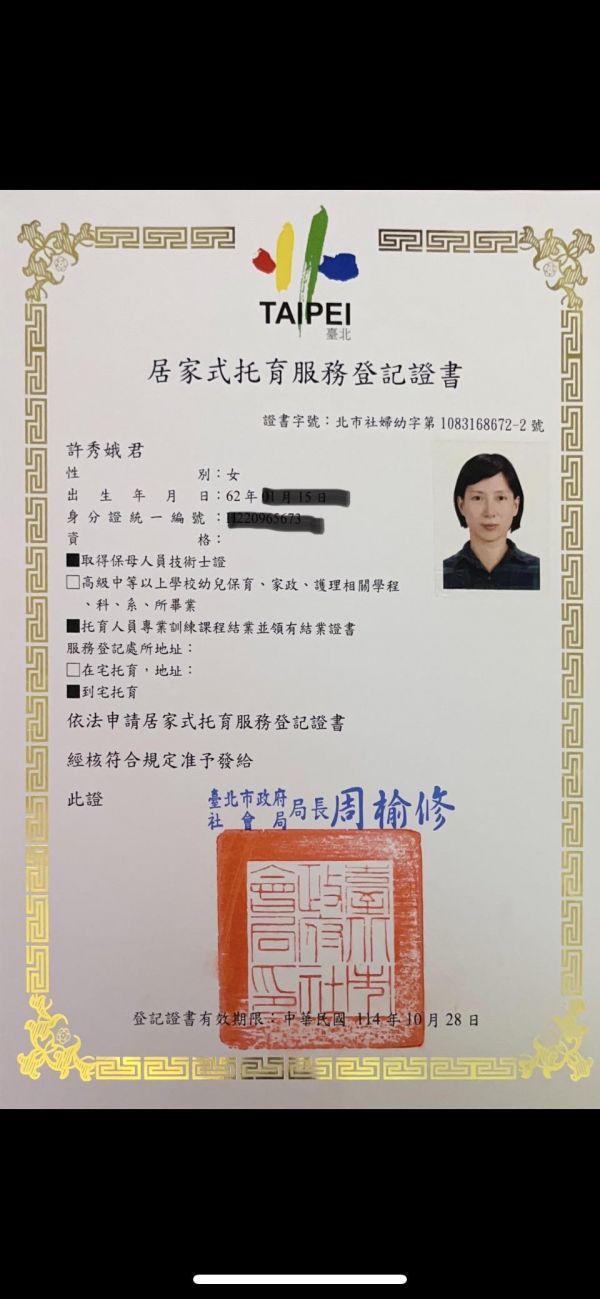 TAIPEI
臺北
居家式托育服務登記證書
證書字號：北市社婦幼字第1083168672-2號
許秀娥 君
性別：女
出生年月日：62年
身分證統一編號：
資格：
■取得保母人員技術士證
□高級中等以上學校幼兒保育、家政、護理相關學程
、科、系、所畢業
■托育人員專業訓練課程結業並領有結業證書
服務登記處所地址：
□在宅托育，地址：
■到宅托育
依法申請居家式托育服務登記證書
經核符合規定准予發給
此證
臺北市政府社會局局長周榆修
臺北市政府社會局印
登記證書有效期限：中華民國 114年10月28日